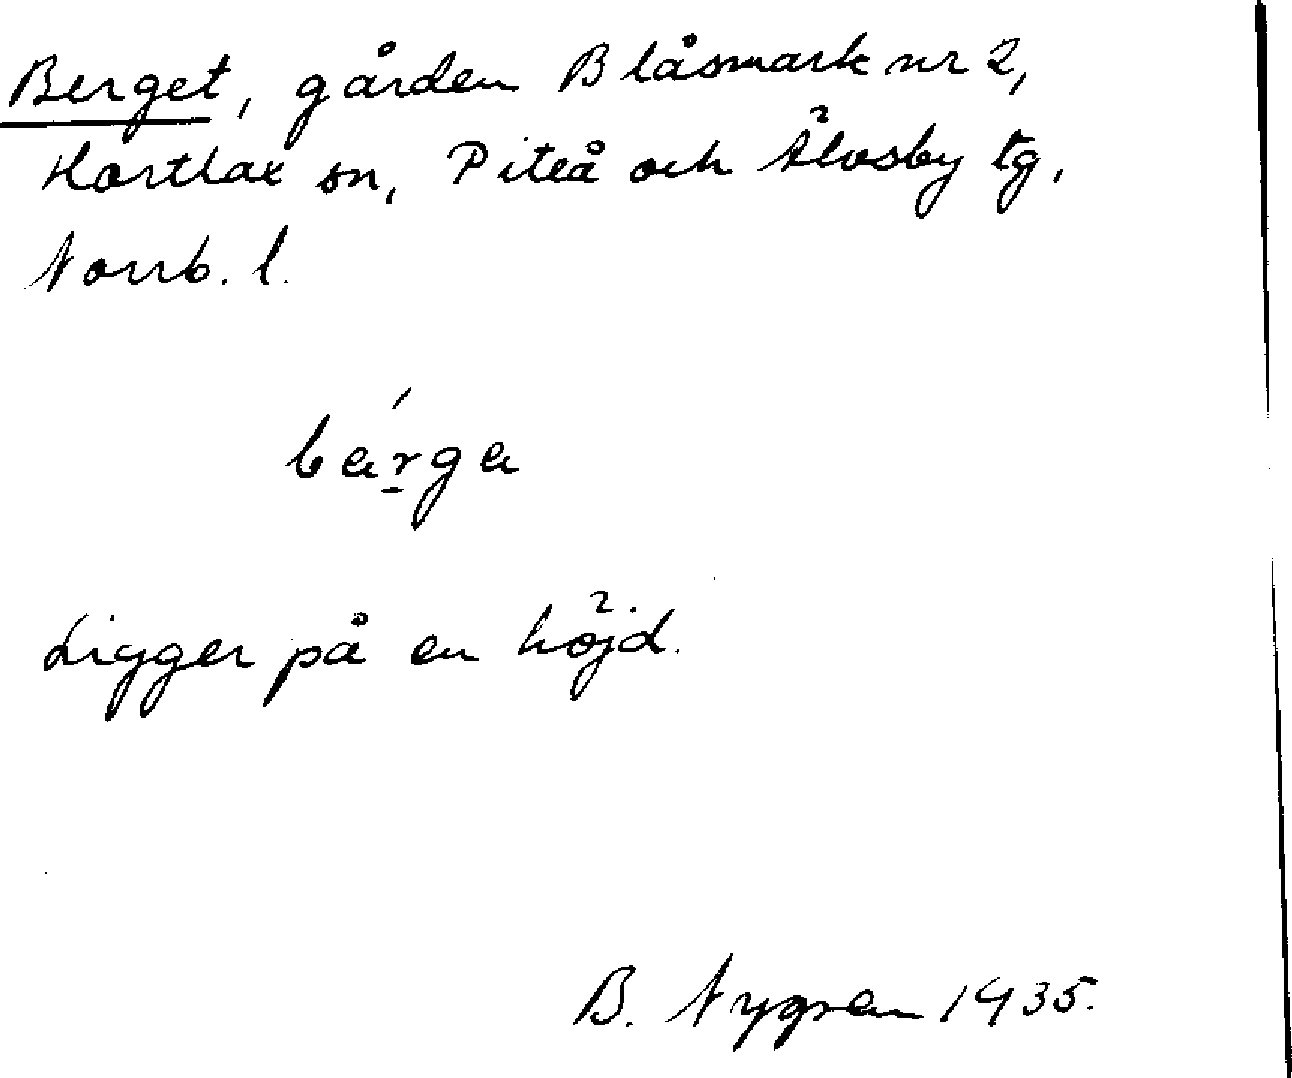 Berget, gården Blåsmark nr 2,
Hortlax sn, Piteå och Älvsby tg,
Norrb. l.
bárga
Ligger på en höjd.
B. Nygren 1935.